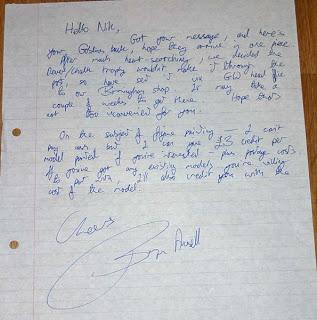 Hello Nik,
Got your message, and here's
your Goblins back, hope they arrive in one piece.
After much heart searching, we decided the
trophy wouldn't make it through the
post, so have sent it via GW head office
to our Birmingham shop. It may take a
couple of weeks to get there. Hope that's
not too inconvenient for you.
On the subject of figure painting — I can't
pay cash but I can give £3 credit per
model painted if you're interested - plus postage costs.
If you've got any existing models you're willing
to part with, I'll also credit you with the
cost of the model.
Cheers
Bryan Ansell